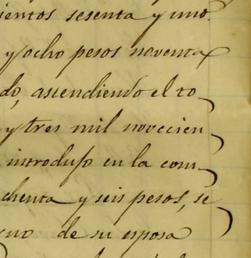 ientos sesenta y uno
y ocho pesos noventa
do, ascendiendo el to
y tres mil novecien
introdujo en la com
chenta y seis pesos, se
de su esposa